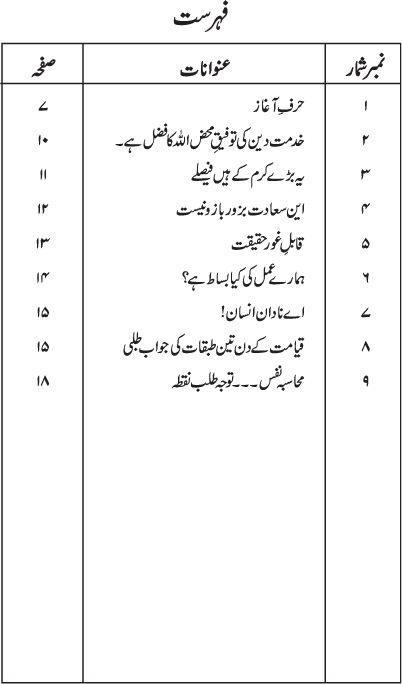 فہرست
نمبر شمار عنوانات صفحہ
۱ حرفِ آغاز ۷
۲ خدمت دین کی توفیق محض اللہ کا فضل ہے۔ ۱۰
۳ یہ بڑے کرم کے ہیں فیصلے ۱۱
۴ این سعادت بزور بازو نیست ۱۲
۵ قابلِ غور حقیقت ۱۳
۶ ہمارے عمل کی کیا بساط ہے؟ ۱۴
۷ اے نادان انسان! ۱۵
۸ قیامت کے دن تین طبقات کی جواب طلبی ۱۵
۹ محاسبہ نفس۔۔۔ توجہ طلب نقطہ ۱۸